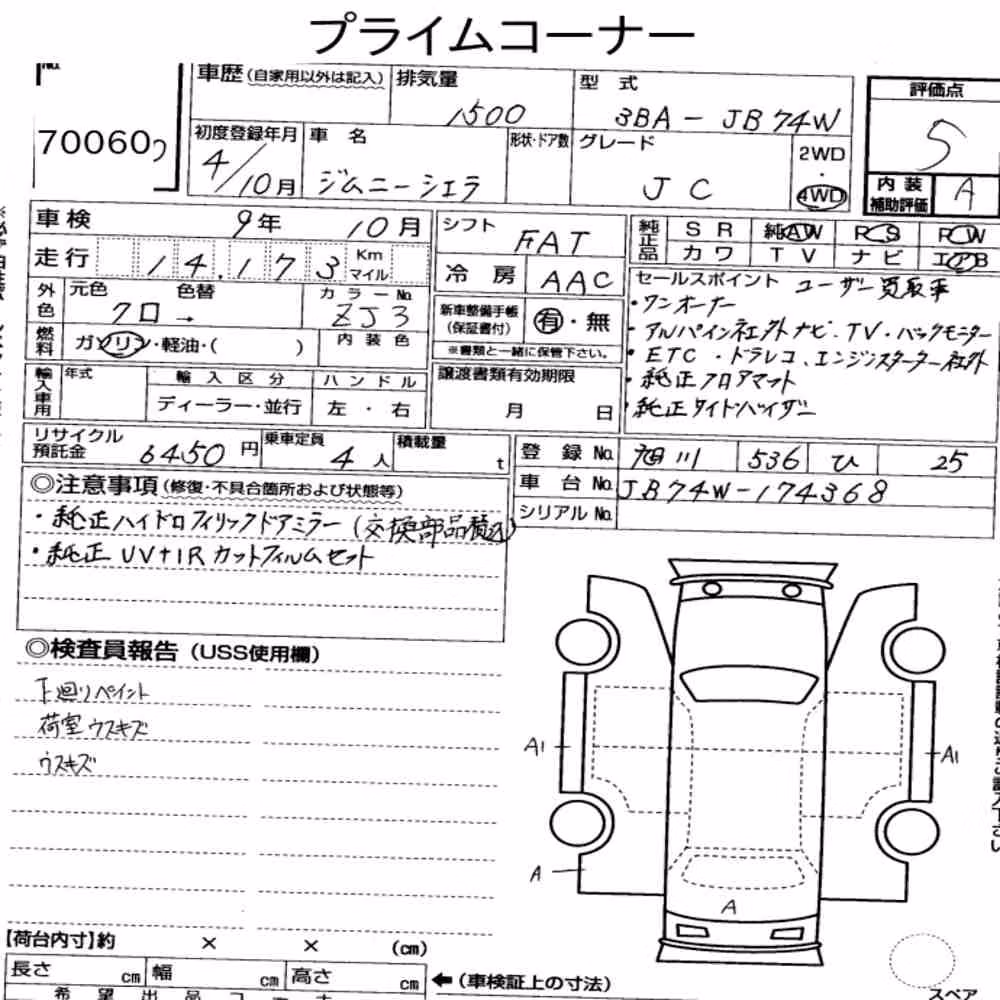 プライムコーナー
No.
70060
車歴(自家用以外は記入) 排気量 1500 型式 3BA-JB74W
初度登録年月 4/10月 車名 ジムニーシエラ 形状・ドア数 グレード JC 2WD・4WD
評価点 5
内装補助評価 A
車検 9年 10月
走行 14,173 Km マイル
外色 元色 クロ → 色替 カラーNo. ZJ3
燃料 ガソリン・軽油・( ) 内装色
輸入車用 年式 輸入区分 ディーラー・並行 ハンドル 左・右
シフト FAT
冷房 AAC
新車整備手帳(保証書付) 有・無
※書類と一緒に保管下さい。
譲渡書類有効期限
月 日
純正品 SR 純AW PS PW
カワ TV ナビ エアB
セールスポイント ユーザー買取車
・ワンオーナー
・アルパイン社外ナビ.TV.バックモニター
・ETC・ドラレコ、エンジンスターター社外
・純正フロアマット
・純正サイドバイザー
リサイクル預託金 6450円 乗車定員 4人 積載量 t
登録No. 旭川 536 ひ 25
車台No. JB74W-174368
シリアルNo.
◎注意事項(修復・不具合箇所および状態等)
・純正ハイドロフィリックドアミラー(交換部品積込)
・純正UV+IRカットフィルムセット
◎検査員報告(USS使用欄)
下廻りペイント
荷室ウスキズ
ウスキズ
A1
A1
A
A
【荷台内寸】約 × × (cm)
長さ cm 幅 cm 高さ cm ←(車検証上の寸法)
希望出品コーナー
スペア